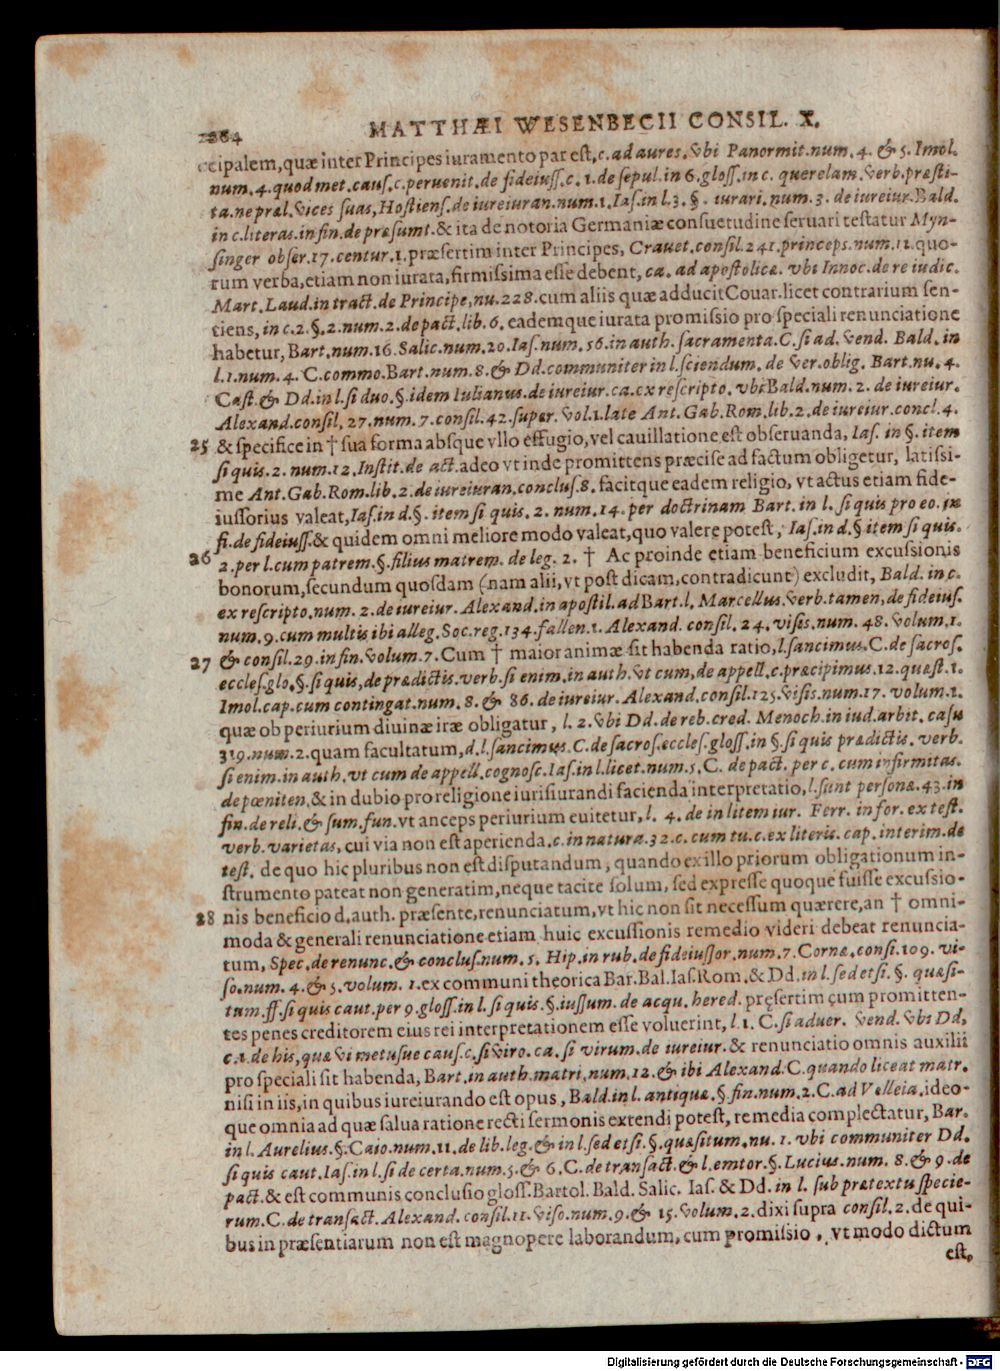 284 MATTHÆI WESENBECII CONSIL. X.
cipalem, quæ inter Principes iuramento par est, c. ad aures. vbi Panormit. num. 4. & 5. Imol.
num. 4. quod met. caus. c. peruenit. de fideiuss. c. 1. de sepul. in 6. gloss. in c. querelam. verb. præsti-
ta. ne præl. vices suas, Hostiens. de iureiuran. num. 1. Ias. in l. 3. §. iurari. num. 3. de iureiur. Bald.
in c. literas. in fin. de præsumt. & ita de notoria Germaniæ consuetudine seruari testatur Myn-
singer obser. 17. centur. 1. præsertim inter Principes, Crauet. consil. 241. princeps. num. 11. quo-
rum verba, etiam non iurata, firmissima esse debent, ca. ad apostolicæ. vbi Innoc. de re iudic.
Mart. Laud. in tract. de Principe, nu. 228. cum aliis quæ adducit Couar. licet contrarium sen-
tiens, in c. 2. §. 2. num. 2. de pact. lib. 6. eademque iurata promissio pro speciali renunciatione
habetur, Bart. num. 16. Salic. num. 20. Ias. num. 56. in auth. sacramenta. C. si ad. vend. Bald. in
l. 1. num. 4. C. commo. Bart. num. 8. & Dd. communiter in l. sciendum. de ver. oblig. Bart. nu. 4.
Cast. & Dd. in l. si duo. §. idem Iulianus. de iureiur. ca. ex rescripto. vbi Bald. num. 2. de iureiur.
Alexand. consil. 27. num. 7. consil. 42. super. vol. 1. late Ant. Gab. Rom. lib. 2. de iureiur. concl. 4.
25 & specifice in † sua forma absque vllo effugio, vel cauillatione est obseruanda, Ias. in §. item
si quis. 2. num. 12. Instit. de act. adeo vt inde promittens præcise ad factum obligetur, latissi-
me Ant. Gab. Rom. lib. 2. de iureiuran. conclus. 8. facitque eadem religio, vt actus etiam fide-
iussorius valeat, Ias. in d. §. item si quis. 2. num. 14. per doctrinam Bart. in l. si quis pro eo. in
fi. de fideiuss. & quidem omni meliore modo valeat, quo valere potest, Ias. in d. § item si quis.
26 2. per l. cum patrem. §. filius matrem. de leg. 2. † Ac proinde etiam beneficium excussionis
bonorum, secundum quosdam (nam alii, vt post dicam, contradicunt) excludit, Bald. in c.
ex rescripto. num. 2. de iureiur. Alexand. in apostil. ad Bart. l. Marcellus. verb. tamen, de fideius.
num. 9. cum multis ibi alleg. Soc. reg. 134. fallen. 1. Alexand. consil. 24. visis. num. 48. volum. 1.
27 & consil. 29. in fin. volum. 7. Cum † maior animæ sit habenda ratio, l. sancimus. C. de sacros.
eccles. glo. §. si quis, de prædictis. verb. si enim. in auth. vt cum, de appell. c. præcipimus. 12. quæst. 1.
Imol. cap. cum contingat. num. 8. & 86. de iureiur. Alexand. consil. 125. visis. num. 17. volum. 1.
quæ ob periurium diuinæ iræ obligatur, l. 2. vbi Dd. de reb. cred. Menoch. in iud. arbit. casu
319. num. 2. quam facultatum, d. l. sancimus. C. de sacros. eccles. gloss. in §. si quis prædictis. verb.
si enim. in auth. vt cum de appell. cognosc. Ias. in l. licet. num. 5. C. de pact. per c. cum infirmitas.
de pœniten. & in dubio pro religione iurisiurandi facienda interpretatio, l. sunt personæ. 43. in
fin. de reli. & sum. fun. vt anceps periurium euitetur, l. 4. de in litem iur. Ferr. in for. ex test.
verb. varietas, cui via non est aperienda. c. in natura. 32. c. cum tu. c. ex literis. cap. interim. de
test. de quo hic pluribus non est disputandum, quando ex illo priorum obligationum in-
strumento pateat non generatim, neque tacite solum, sed expresse quoque fuisse excussio-
28 nis beneficio d. auth. præsente, renunciatum, vt hic non sit necessum quærere, an † omni-
moda & generali renunciatione etiam huic excussionis remedio videri debeat renuncia-
tum, Spec. de renunc. & conclus. num. 5. Hip. in rub. de fideiussor. num. 7. Corne. consi. 109. vi-
so. num. 4. & 5. volum. 1. ex communi theorica Bar. Bal. Ias. Rom. & Dd. in l. sed etsi. §. quæsi-
tum. ff. si quis caut. per 9. gloss. in l. si quis. §. iussum. de acqu. hered. pręsertim cum promitten-
tes penes creditorem eius rei interpretationem esse voluerint, l. 1. C. si aduer. vend. vbi Dd,
c. 1. de his, quæ vi metusue caus. c. si viro. ca. si virum. de iureiur. & renunciatio omnis auxilii
pro speciali sit habenda, Bart. in auth. matri. num. 12. & ibi Alexand. C. quando liceat matr.
nisi in iis, in quibus iureiurando est opus, Bald. in l. antiquæ. §. fin. num. 2. C. ad Velleia. ideo-
que omnia ad quæ salua ratione recti sermonis extendi potest, remedia complectatur, Bar.
in l. Aurelius. §. Caio. num. 11. de lib. leg. & in l. sed etsi. §. quæsitum. nu. 1. vbi communiter Dd.
si quis caut. Ias. in l. si de certa. num. 5. & 6. C. de transact. & l. emtor. §. Lucius. num. 8. & 9. de
pact. & est communis conclusio gloss. Bartol. Bald. Salic. Ias. & Dd. in l. sub prætextu specie-
rum. C. de transact. Alexand. consil. 11. viso. num. 9. & 15. volum. 2. dixi supra consil. 2. de qui-
bus in præsentiarum non est magnopere laborandum, cum promissio, vt modo dictum
est,
Digitalisierung gefördert durch die Deutsche Forschungsgemeinschaft - DFG